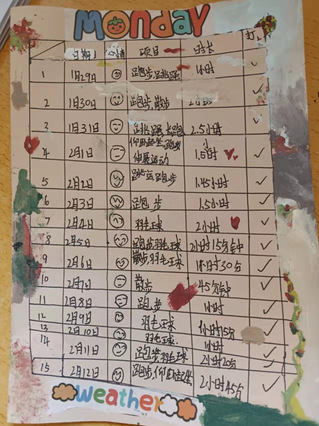 Monday
日期 心情 项目 时长 打
1 1月29日 跑步 1小时 ✓
2 1月30日 跑步 散步 ✓
3 1月31日 2.5小时 ✓
4 2月1日 仰卧起坐 伸展运动 1.5小时 ✓
5 2月2日 跑步 1.45小时 ✓
6 2月3日 跑步 1.5小时 ✓
7 2月4日 羽毛球 2小时 ✓
8 2月5日 跑步羽毛球 2小时15分钟 ✓
9 2月6日 散步羽毛球 1小时30分 ✓
10 2月7日 散步 45分钟 ✓
11 2月8日 跑步 1小时 ✓
12 2月9日 羽毛球 1小时15分 ✓
13 2月10日 羽毛球 ✓
14 2月11日 跑步羽毛球 2小时20分 ✓
15 2月12日 跑步仰卧起坐 2小时45分 ✓
weather